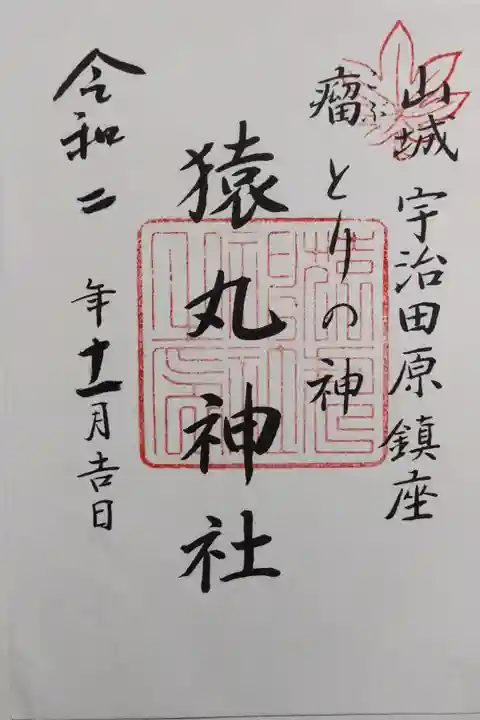 山城 宇治田原鎮座
瘤とりの神
こぶ
猿丸神社
令和二年十一月吉日